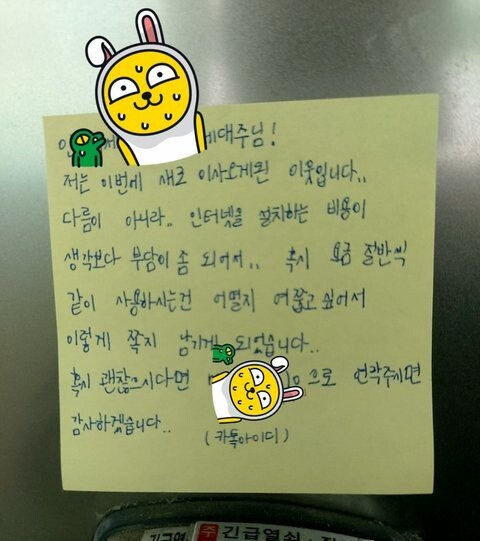 세대주님!
저는 이번에 새로 이사오게된 이웃입니다..
다름이 아니라.. 인터넷을 설치하는 비용이
생각보다 부담이 좀 되어서.. 혹시 요금 절반씩
같이 사용하시는건 어떨지 여쭙고 싶어서
이렇게 쪽지 남기게 되었습니다..
혹시 괜찮으시다면 으로 연락주시면
감사하겠습니다..
(카톡아이디)
주 긴급열쇠